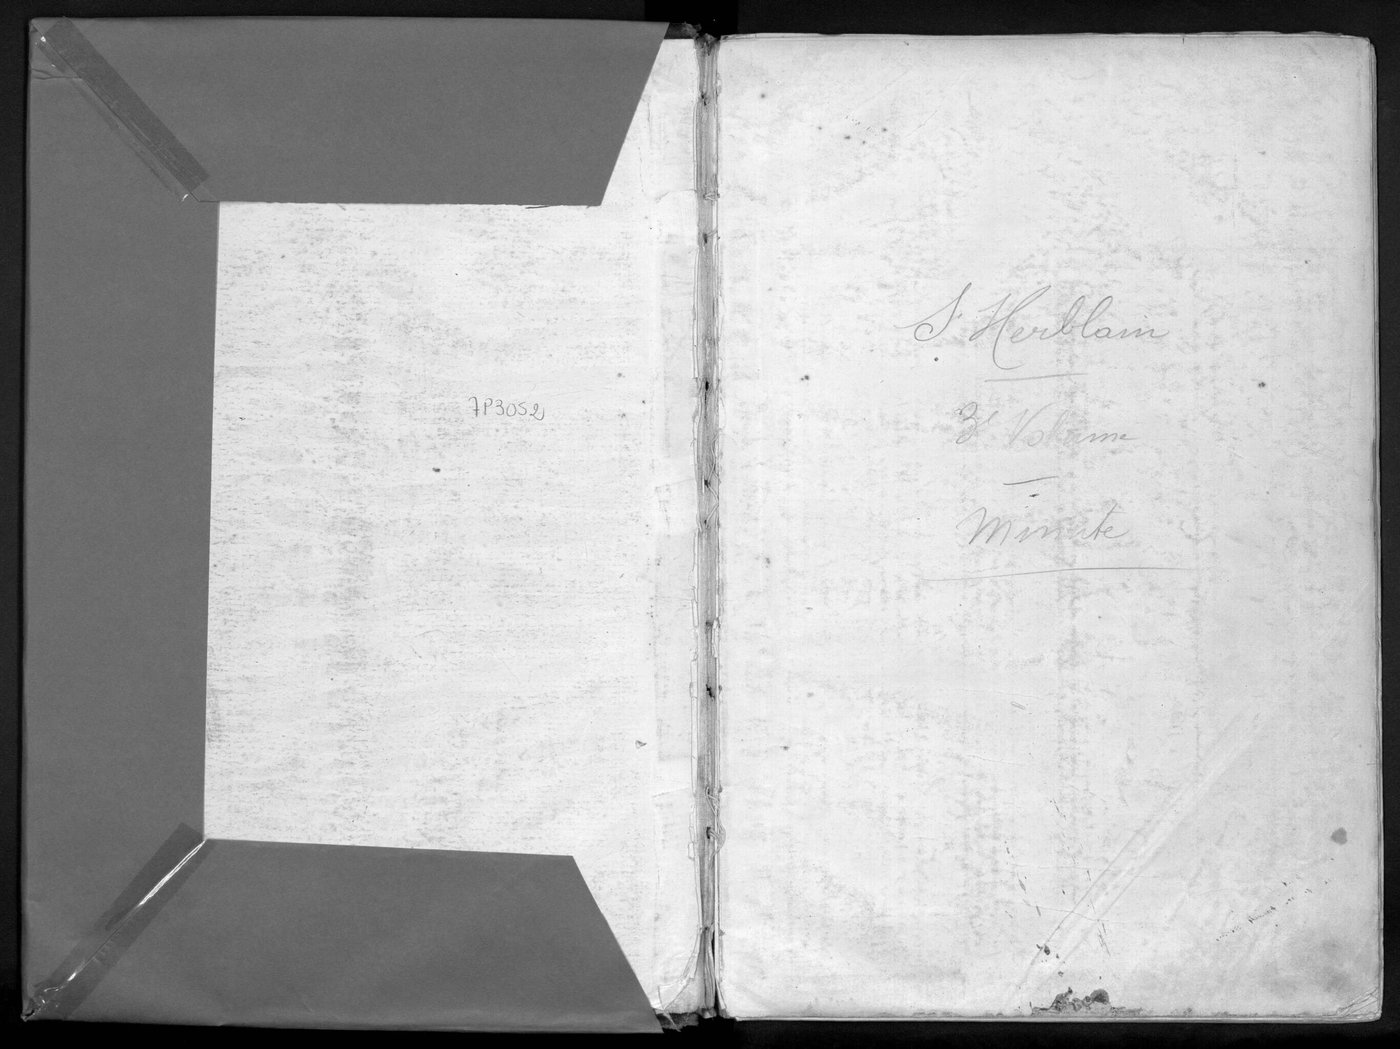 7P3052
St Herblain
3e Volume
Minute